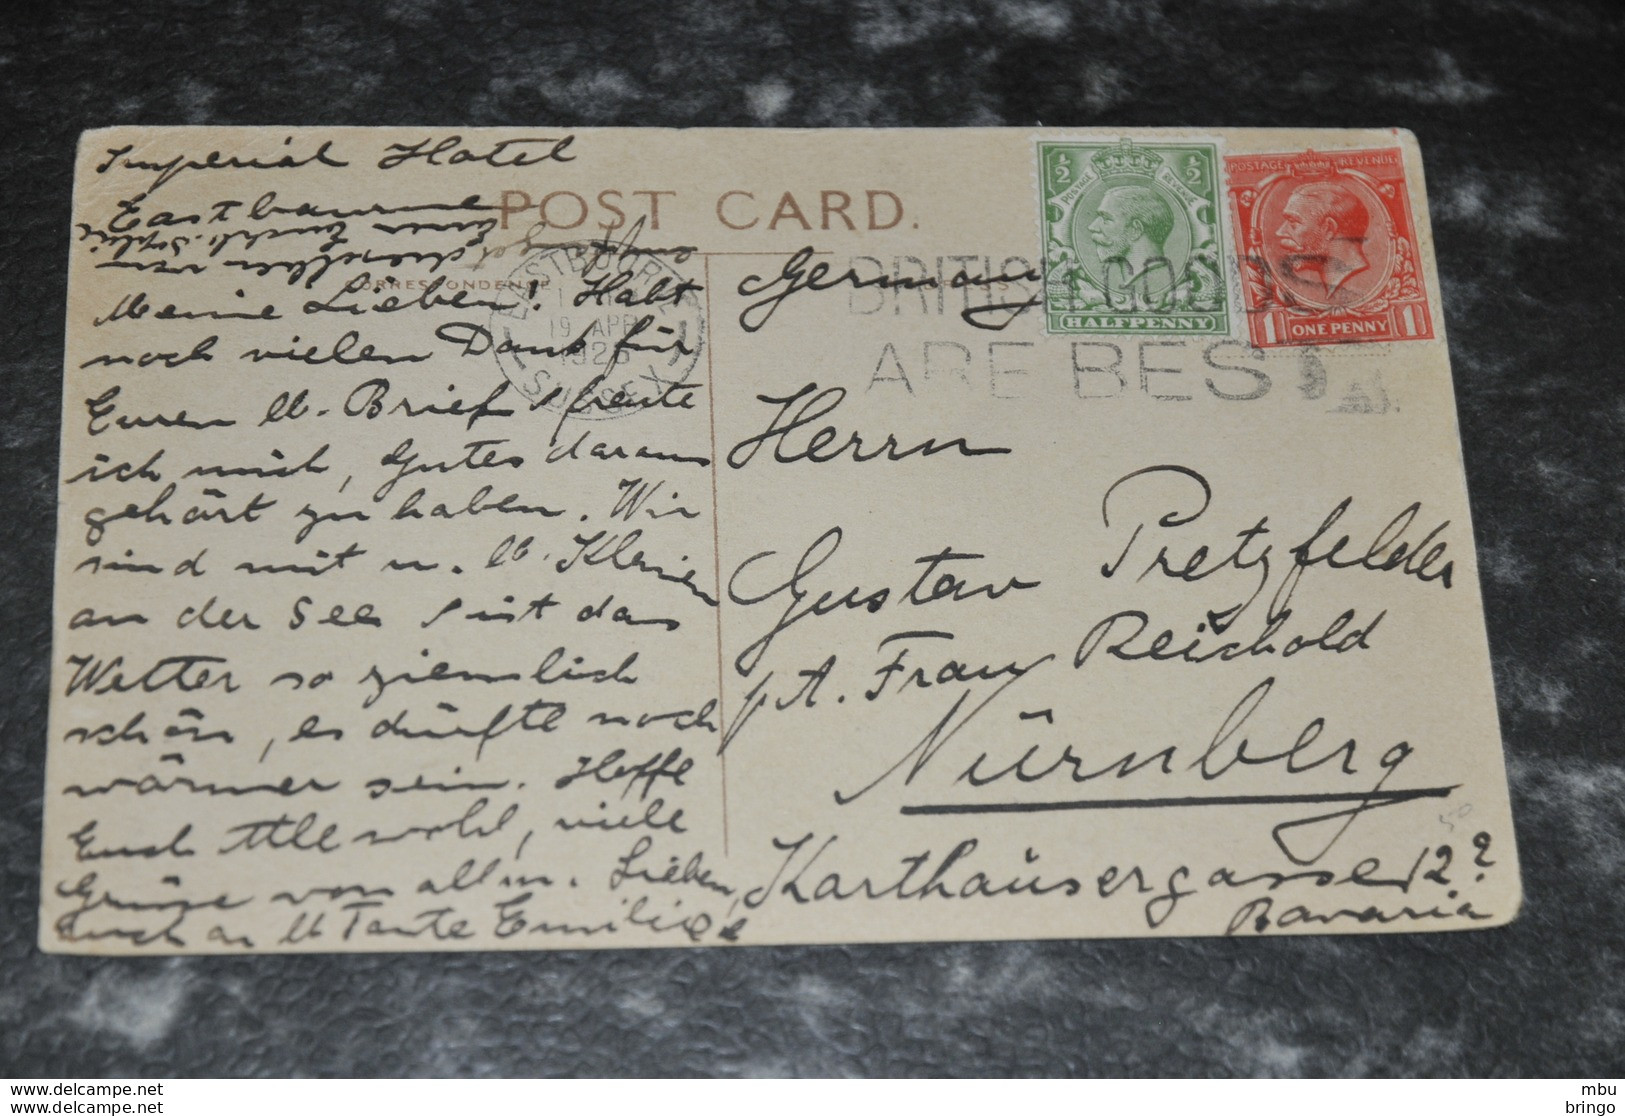 Imperial Hotel
Eastbourne
POST CARD.
CORRESPONDENCE
Meine Lieben! Habt
noch vielen Dank für
Euren lb. Brief & freute
ich mich, Gutes daraus
gehört zu haben. Wir
sind mit u. lb. Kleinen
an der See & ist das
Wetter so ziemlich
schön, es dürfte noch
wärmer sein. Hoffe
Euch Alle wohl, viele
Grüsse von all m. Lieben,
auch an lb Tante Emilie
dieselben von
Eurer Euchlb. Sophie
EASTBOURNE
19 APR
1926
SUSSEX
BRITISH GOODS
ARE BEST
1/2 1/2
POSTAGE REVENUE
HALFPENNY
POSTAGE REVENUE
1 ONE PENNY 1
Germany
Herrn
Gustav Pretzfelder
p. A. Frau Reichold
Nürnberg
Karthäusergasse 12?
Bavaria
50
delcampe.net
mbu
bringo